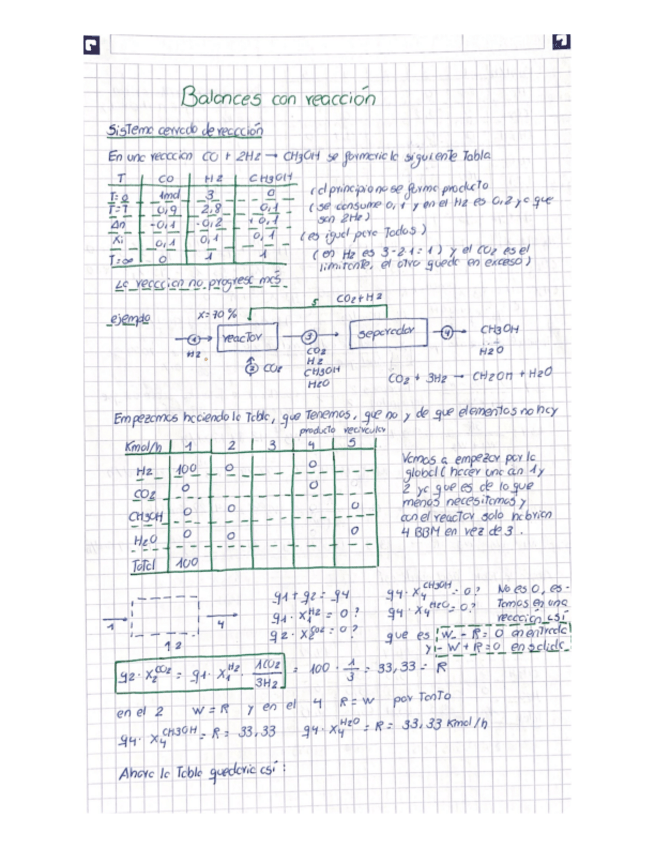 Balances con reacción
Sistema cerrado de reacción
En una reacción CO + 2H2 → CH3OH se formaría la siguiente Tabla
T CO H2 CH3OH
T=0 1mol 3 0 (al principio no se forma producto
T=T 0,9 2,8 0,1 (se consume 0,1 y en el H2 es 0,2 ya que
Δn -0,1 -0,2 +0,1 son 2H2)
Xi 0,1 0,1 0,1 (es igual para Todos)
T=∞ 0 1 1 (en H2 es 3-2·1=1) y el CO2 es el
limitante, el otro queda en exceso)
La reacción no progresa más
ejemplo
X=70%
5 CO2+H2
1 reactor 3 separador 4 CH3OH
H2 H2O
2 CO2
CO2
H2
CH3OH
H2O
CO2 + 3H2 → CH2OH + H2O
Empezamos haciendo la Tabla, que Tenemos, que no y de que elementos no hay
producto recirculan
Kmol/h 1 2 3 4 5
H2 100 0 0
CO2 0 0
CH3OH 0 0 0
H2O 0 0 0
Total 100
Vamos a empezar por la
global (hacer una an 1 y
2 ya que es de lo que
menos necesitamos y
con el reactor solo habrían
4 BBM en vez de 3.
1 4
1 2
q1+q2 = q4
q1·X1^H2 = 0?
q2·X2^CO2 = 0?
q4·X4^CH3OH = 0?
q4·X4^H2O = 0?
No es 0, es-
Tamos en una
reacción así
que es W - R = 0 en entrada
y - W + R = 0 en salida
q2·X2^CO2 = q1·X1^H2 · 1CO2/3H2 = 100 · 1/3 = 33,33 = R
en el 2 W = R y en el 4 R = W por Tanto
q4·X4^CH3OH = R = 33,33 q4·X4^H2O = R = 33,33 Kmol/h
Ahora la Tabla quedaría así: